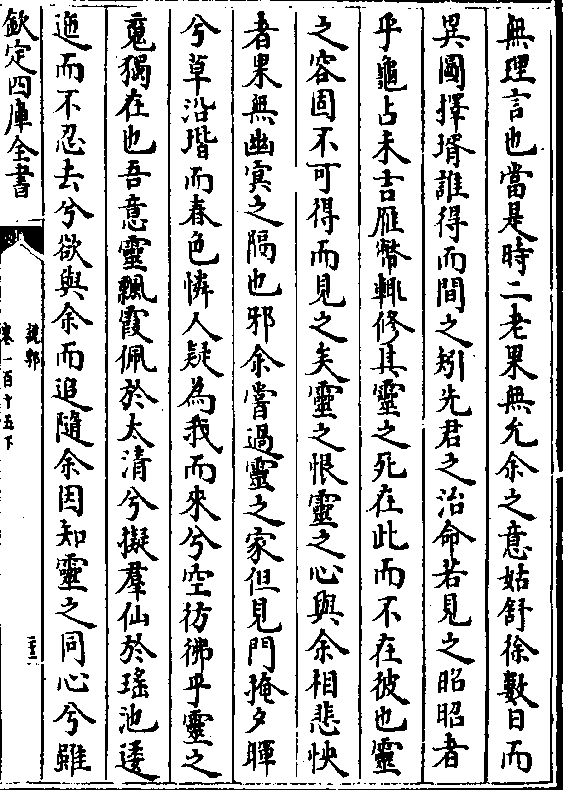 無理言也當是時二老果無允余之意姑舒徐數日而
異圖擇壻誰得而間之矧先君之治命若見之昭昭者
乎龜占未吉雁幣輒修其靈之死在此而不在彼也靈
之容固不可得而見之矣靈之恨靈之心與余相悲怏
者果無幽冥之隔也邪余嘗過靈之家但見門掩夕暉
兮草沿堦而春色憐人疑為我而來兮空彷彿乎靈之
䰟獨在也吾意靈飄霞佩於太清兮擬羣仙於瑤池逶
迤而不忍去兮欲與余而追隨余因知靈之同心兮雖
欽定四庫全書
說郛
卷一百十五下